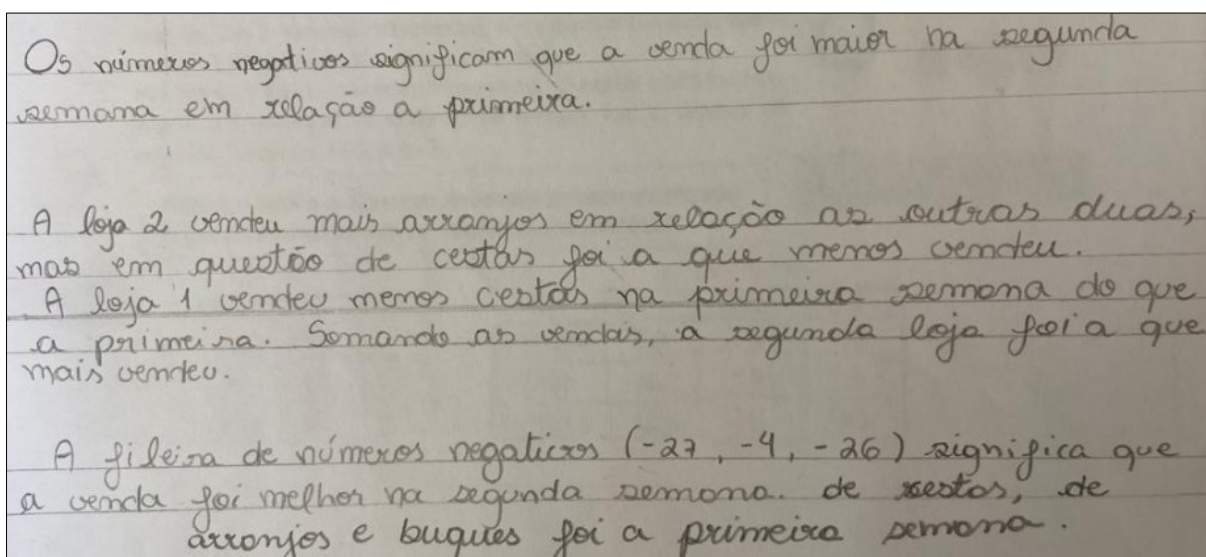 Os números negativos significam que a venda foi maior na segunda
semana em relação a primeira.
A loja 2 vendeu mais arranjos em relação as outras duas,
mas em questão de cestas foi a que menos vendeu.
A loja 1 vendeu menos cestas na primeira semana do que
a primeira. Somando as vendas, a segunda loja foi a que
mais vendeu.
A fileira de números negativos (-27, -4, -26) significa que
a venda foi melhor na segunda semana. de sestas, de
arranjos e buques foi a primeira semana.